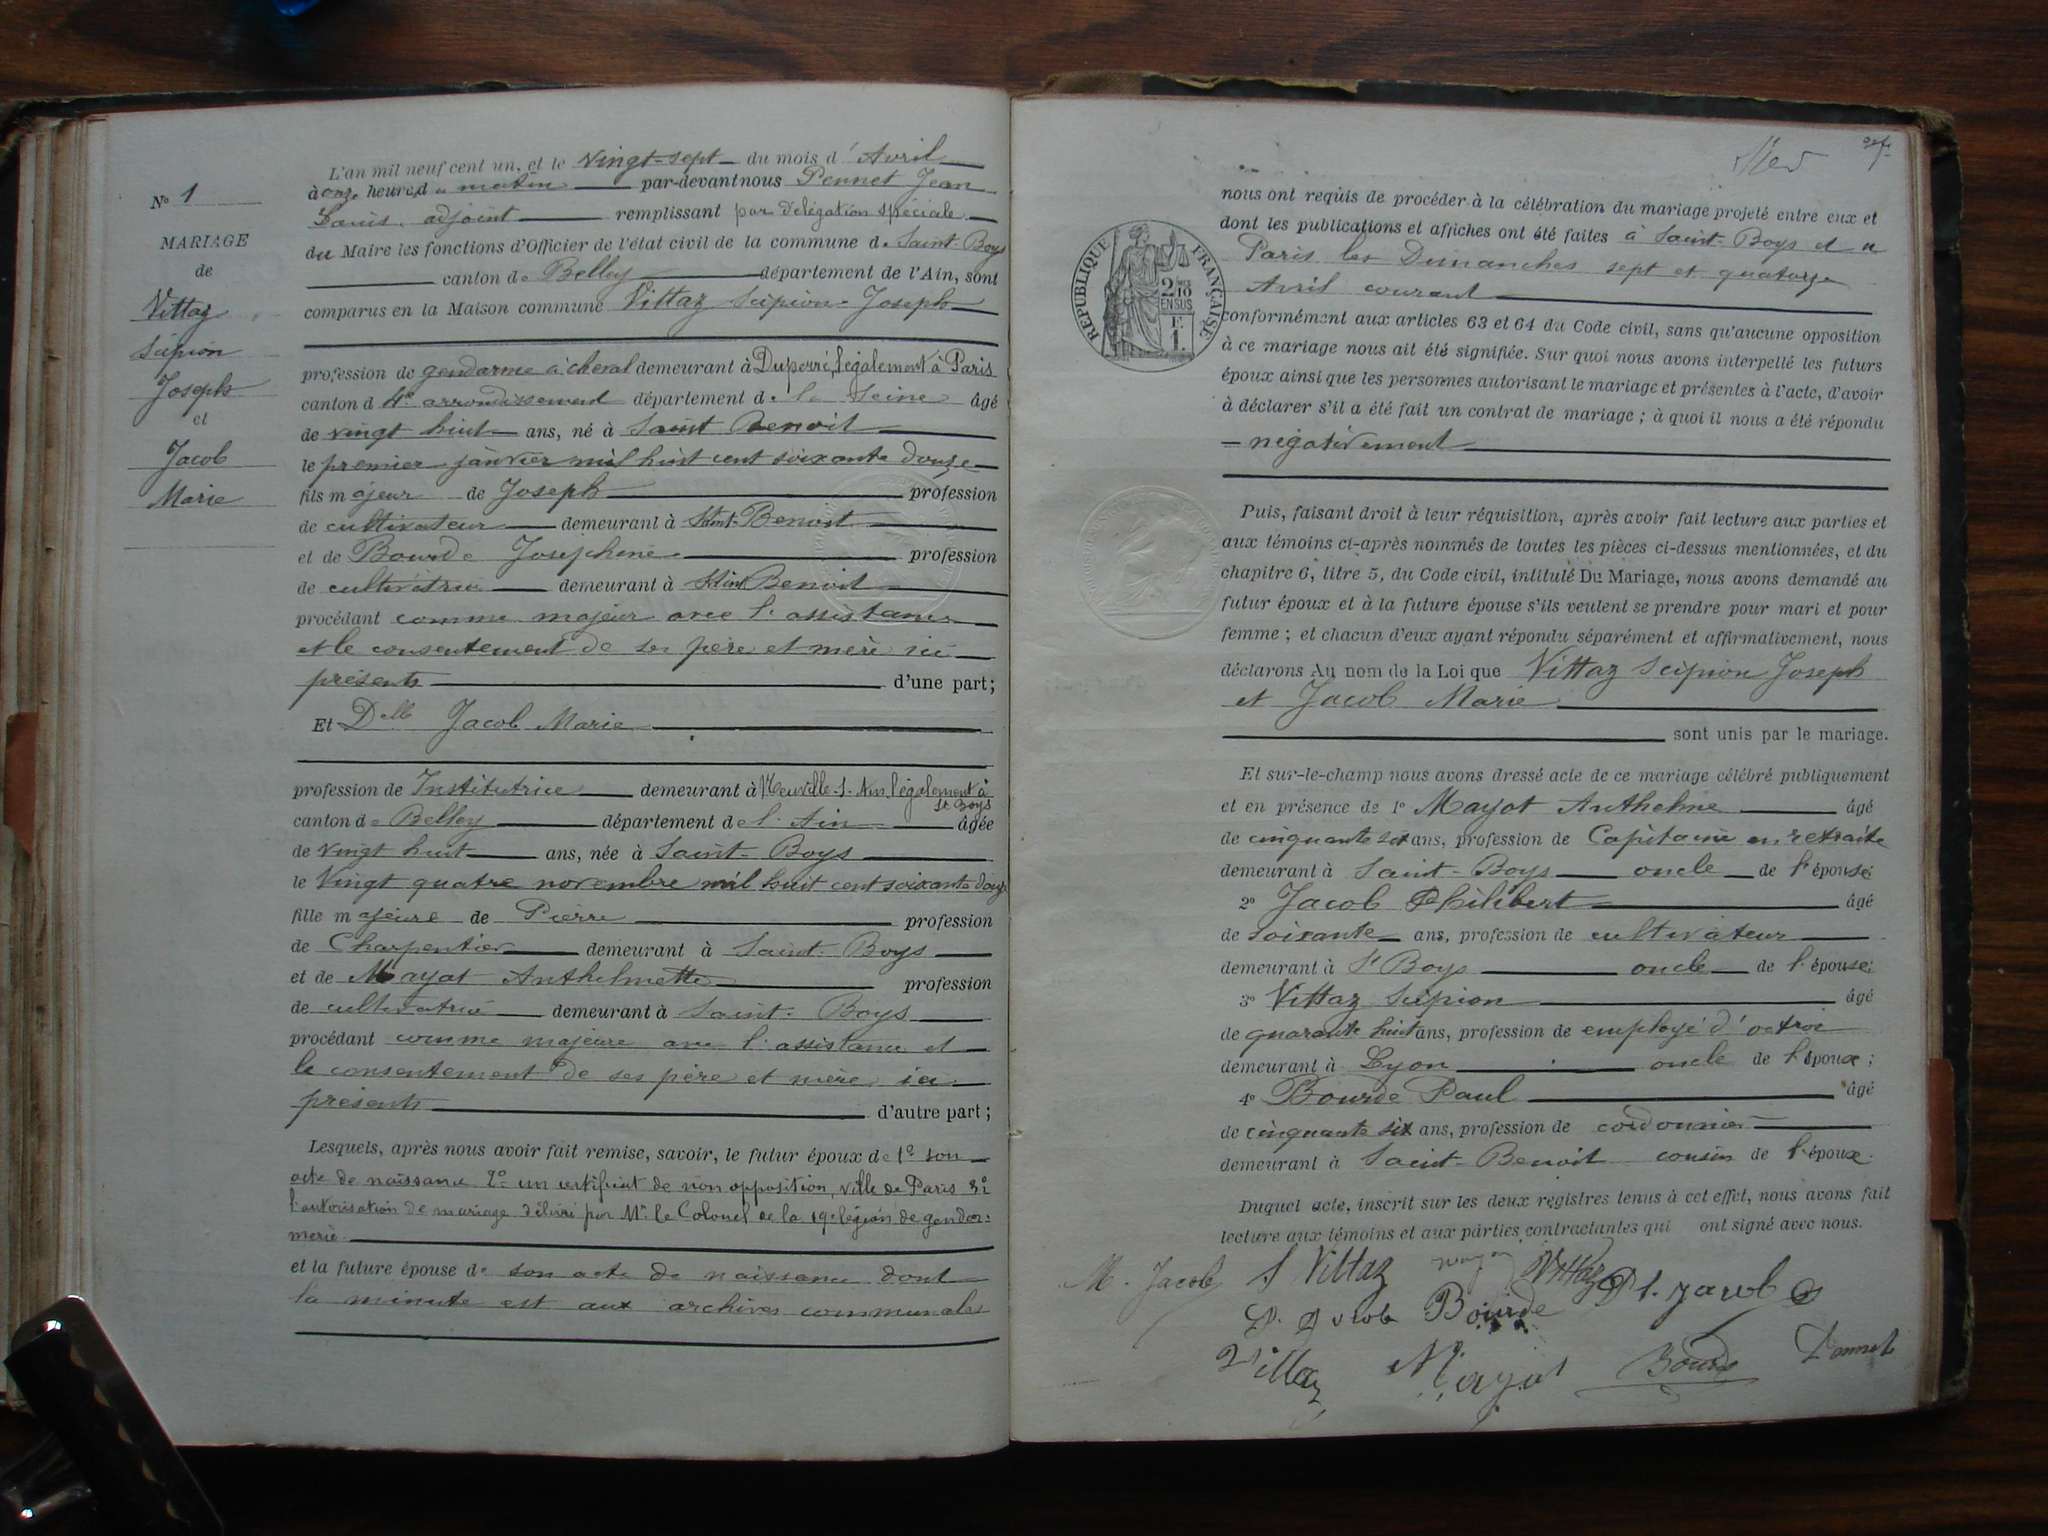 N° 1
MARIAGE
de
Vittaz
Scipion
Joseph
et
Jacob
Marie
L'an mil neuf cent un, et le vingt-sept du mois d'Avril
à onze heures du matin par-devant nous Pennet Jean
Louis adjoint remplissant par délégation spéciale
du Maire les fonctions d'Officier de l'état civil de la commune de Saint-Boys
canton de Belley département de l'Ain, sont
comparus en la Maison commune Vittaz Scipion-Joseph
profession de gendarme à cheval demeurant à Duperré, légalement à Paris
canton d 4e arrondissement département de la Seine âgé
de vingt huit ans, né à Saint Benoit
le premier janvier mil huit cent soixante douze
fils majeur de Joseph profession
de cultivateur demeurant à Saint-Benoit
et de Bourde Josephine profession
de cultivatrice demeurant à Saint Benoit
procédant comme majeur avec l'assistance
et le consentement de ses père et mère ici
présents d'une part;
Et Delle Jacob Marie
profession de Institutrice demeurant à Neuville-s-Ain légalement à
St Boys
canton de Belley département de l'Ain âgée
de vingt huit ans, née à Saint-Boys
le Vingt quatre novembre mil huit cent soixante douze
fille majeure de Pierre profession
de Charpentier demeurant à Saint-Boys
et de Mayot Anthelmette profession
de cultivatrice demeurant à Saint-Boys
procédant comme majeure avec l'assistance et
le consentement de ses père et mère ici
présents d'autre part;
Lesquels, après nous avoir fait remise, savoir, le futur époux de 1° son
acte de naissance 2° un certificat de non opposition, ville de Paris 3°
l'autorisation de mariage délivré par Mr le Colonel de la 19e légion de gendar-
merie
et la future épouse de son acte de naissance dont
la minute est aux archives communales
nous ont requis de procéder à la célébration du mariage projeté entre eux et
dont les publications et affiches ont été faites à Saint-Boys et a
Paris les Dimanches sept et quatorze
Avril courant
RÉPUBLIQUE FRANÇAISE
2/10
EN SUS
conformément aux articles 63 et 64 du Code civil, sans qu'aucune opposition
à ce mariage nous ait été signifiée. Sur quoi nous avons interpellé les futurs
époux ainsi que les personnes autorisant le mariage et présentes à l'acte, d'avoir
à déclarer s'il a été fait un contrat de mariage; à quoi il nous a été répondu
négativement
Puis, faisant droit à leur réquisition, après avoir fait lecture aux parties et
aux témoins ci-après nommés de toutes les pièces ci-dessus mentionnées, et du
chapitre 6, titre 5, du Code civil, intitulé Du Mariage, nous avons demandé au
futur époux et à la future épouse s'ils veulent se prendre pour mari et pour
femme; et chacun d'eux ayant répondu séparément et affirmativement, nous
déclarons Au nom de la Loi que Vittaz Scipion Joseph
et Jacob Marie
sont unis par le mariage.
Et sur-le-champ nous avons dressé acte de ce mariage célébré publiquement
et en présence de 1° Mayot Anthelme âgé
de cinquante six ans, profession de Capitaine en retraite
demeurant à Saint-Boys oncle de l'épouse;
2° Jacob Philibert âgé
de soixante ans, profession de cultivateur
demeurant à St Boys oncle de l'épouse;
3° Vittaz Scipion âgé
de quarante huit ans, profession de employé d'octroi
demeurant à Lyon oncle de l'époux;
4° Bourde Paul âgé
de cinquante six ans, profession de cordonnier
demeurant à Saint-Benoit cousin de l'époux.
Duquel acte, inscrit sur les deux registres tenus à cet effet, nous avons fait
lecture aux témoins et aux parties contractantes qui ont signé avec nous.
M. Jacob S Vittaz Vittaz Ph. Jacob
P. Jacob Bourde
Vittaz Mayot Bourde Pennet